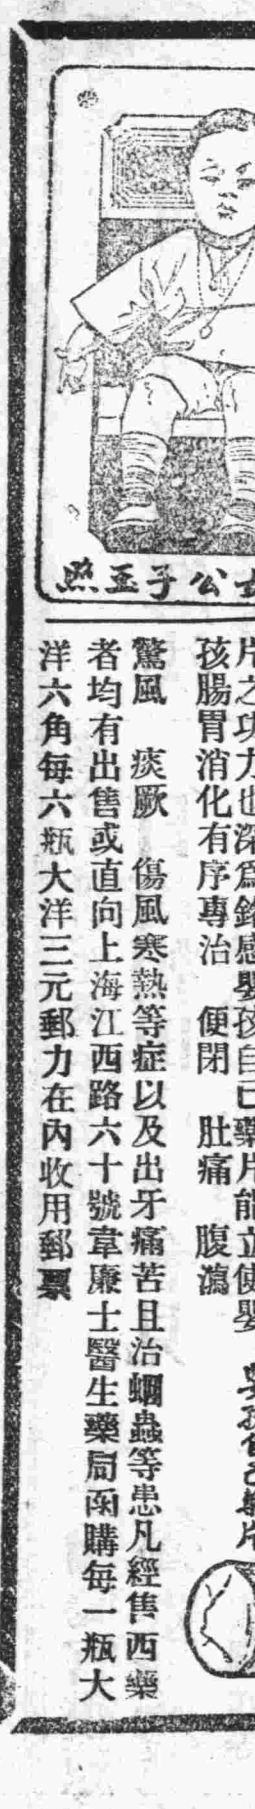 照玉子公士
片之功力也深爲銘感嬰孩自已藥片能立使嬰
孩腸胃消化有序專治 便閉 肚痛 腹瀉
驚風 痰厥 傷風寒熱等症以及出牙痛苦且治蛔蟲等患凡經售西藥
者均有出售或直向上海江西路六十號韋廉士醫生藥局函購每一瓶大
洋六角每六瓶大洋三元郵力在內收用郵票
嬰孩自己藥片